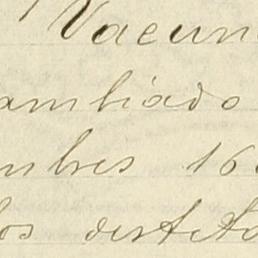 Vacun
ambiado
mbres 16
los desteta